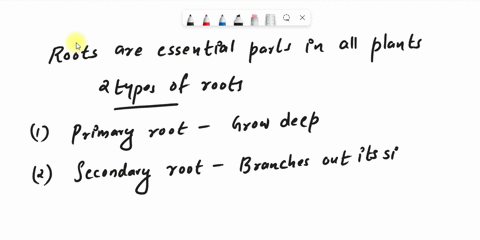 Roots are essential parts in all plants
2 types of roots
(1) Primary root - Grow deep
(2) Secondary root - Branches out its si